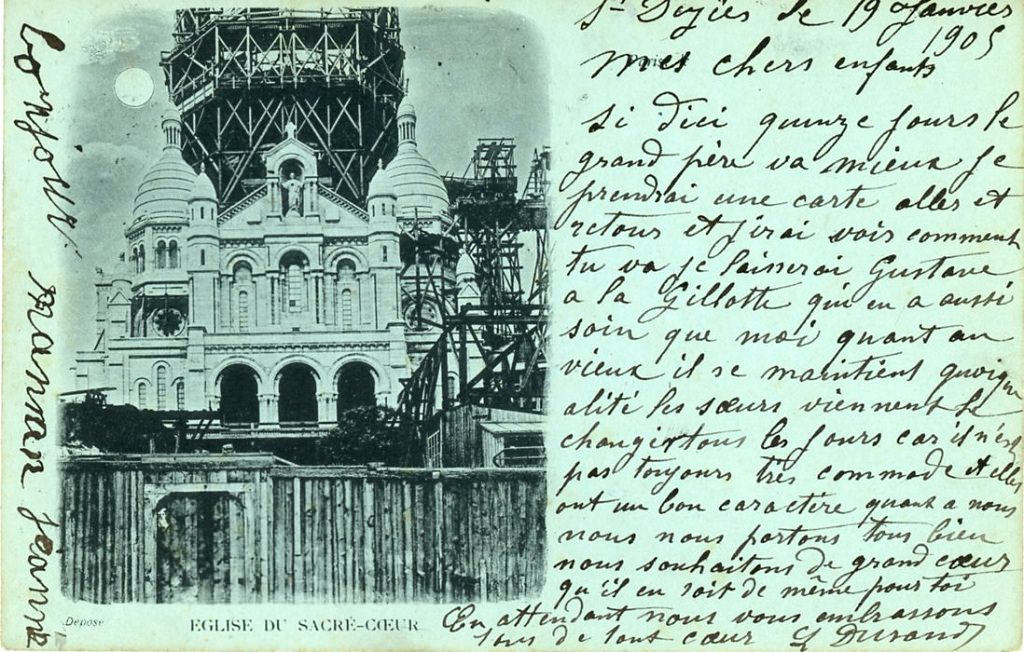 St Dizier le 19 Janvier
1905
mes chers enfants
Si dici quinze jours le
grand père va mieux je
prendrai une carte aller et
retour et jirai voir comment
tu va je laisserai Gustave
a la Gillotte qui en a aussi
soin que moi quant au
vieux il se maintient quoique
alité les sœurs viennent le
changer tous les jours car il n'est
pas toujours très commode et elles
ont un bon caractère quant a nous
nous nous portons tous bien
nous souhaitons de grand cœur
qu'il en soit de même pour toi
En attendant nous vous embrassons
tous de tout cœur G Durand
bonjour maman Jeanne
Déposé
EGLISE DU SACRÉ-CŒUR